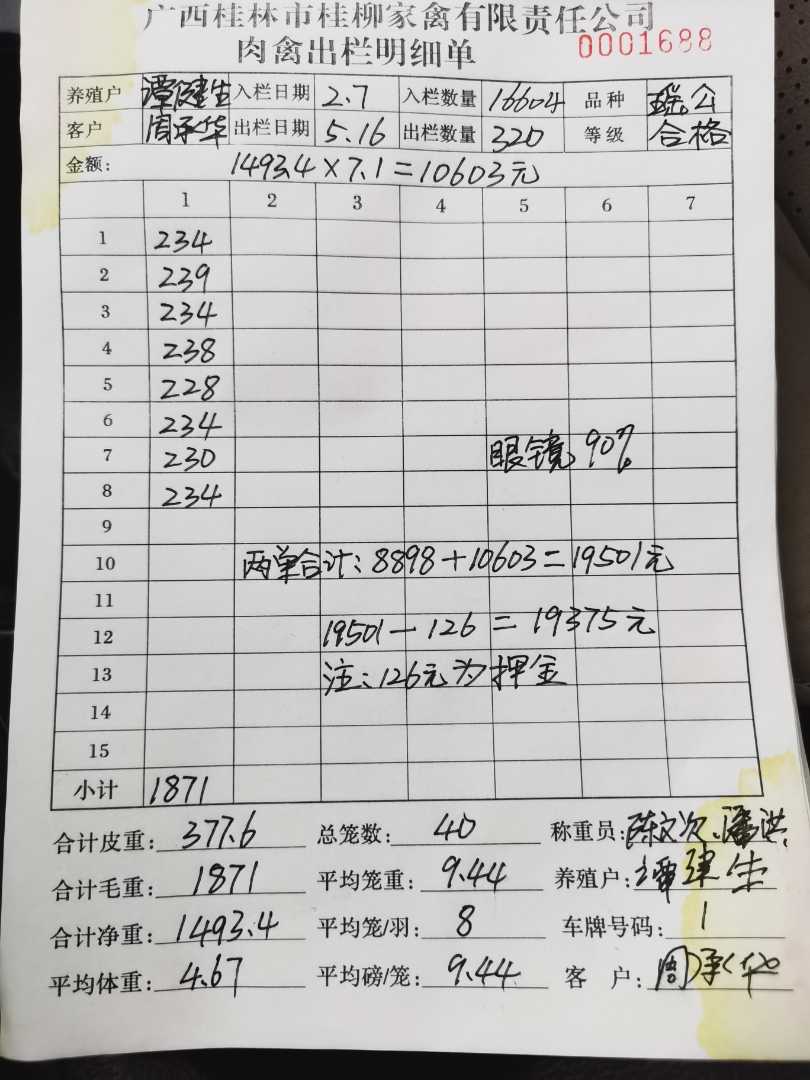 广西桂林市桂柳家禽有限责任公司
肉禽出栏明细单 0001688
养殖户 谭健生 入栏日期 2.7 入栏数量 16604 品种 瑶公
客户 周承华 出栏日期 5.16 出栏数量 320 等级 合格
金额: 1493.4×7.1=10603元
1 2 3 4 5 6 7
1 234
2 239
3 234
4 238
5 228
6 234
7 230 眼镜90%
8 234
9
10 两单合计:8898+10603=19501元
11
12 19501-126=19375元
13 注:126元为押金
14
15
小计 1871
合计皮重: 377.6 总笼数: 40 称重员: 陈文次、潘洪
合计毛重: 1871 平均笼重: 9.44 养殖户: 谭建生
合计净重: 1493.4 平均笼/羽: 8 车牌号码: 1
平均体重: 4.67 平均磅/笼: 9.44 客 户: 周承华